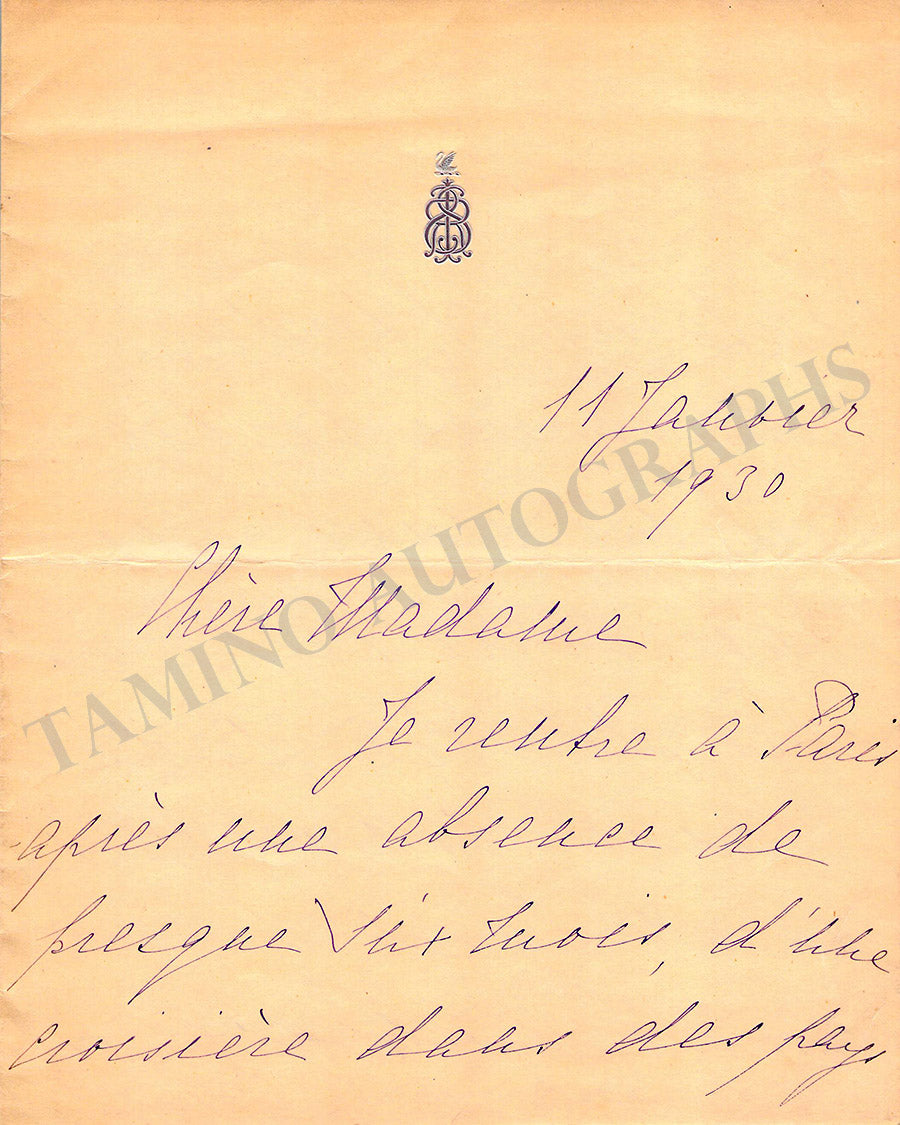 11 Janvier
1930
Chère Madame
Je rentre à Paris
après une absence de
presque six mois, d'une
croisière dans des pays
TAMINO AUTOGRAPHS